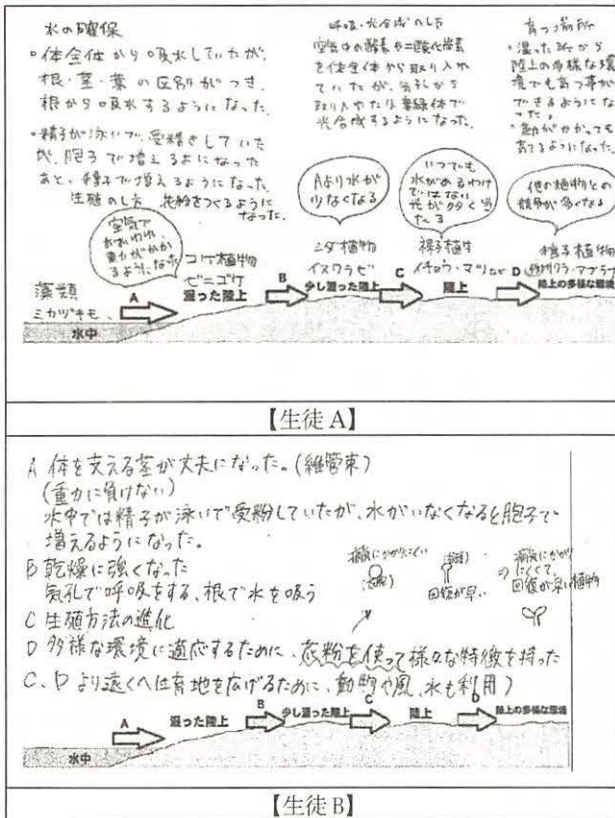 水の確保
・体全体から吸水していたが、
根・茎・葉の区別がつき、
根から吸水するようになった。
・精子が泳いで、受精をしていた
が、胞子で増えるようになった
あと、種子で増えるようになった。
生殖のし方 花粉をつくるように
なった。
呼吸・光合成のし方
空気中の酸素や二酸化炭素
を体全体から取り入れ
ていたが、気孔から
取り入れたり葉緑体で
光合成するようになった。
育つ場所
・湿った所から
陸上の多様な環
境でも育つ事が
できるようにな
った。
育てるようになった。
空気で
おおわれ、
重力がかか
るようになった
Aより水が
少なくなる
いつでも
水があるわけ
ではない
光が多く当
たる
他の植物との
競争が多くなる
藻類
ミカヅキモ、
水中
A
コケ植物
ゼニゴケ
湿った陸上
B
シダ植物
イヌワラビ
少し湿った陸上
C
裸子植生
イチョウ・マツなど
陸上
D
種子植物
サクラ・アブラナ
陸上の多様な環境
【生徒A】
A 体を支える茎が丈夫になった。(維管束)
(重力に負けない)
水中では精子が泳いで受粉していたが、水がいなくなると胞子で
増えるようになった。
B 乾燥に強くなった
気孔で呼吸をする、根で水を吸う
C 生殖方法の進化
D 多様な環境に適応するために、花粉を使って様々な特徴を持った
C、D より遠くへ生育地を広げるために、動物や風、水も利用)
病気にかかりにくい
回復が早い
病気にかかり
にくくて、
回復が早い植物
A
湿った陸上
B
少し湿った陸上
C
陸上
D
陸上の多様な環境
水中
【生徒B】